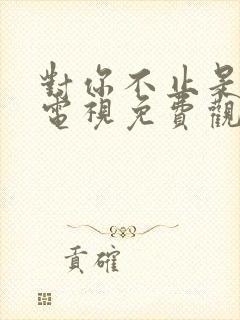 對你不止是
電視免費觀
貢確